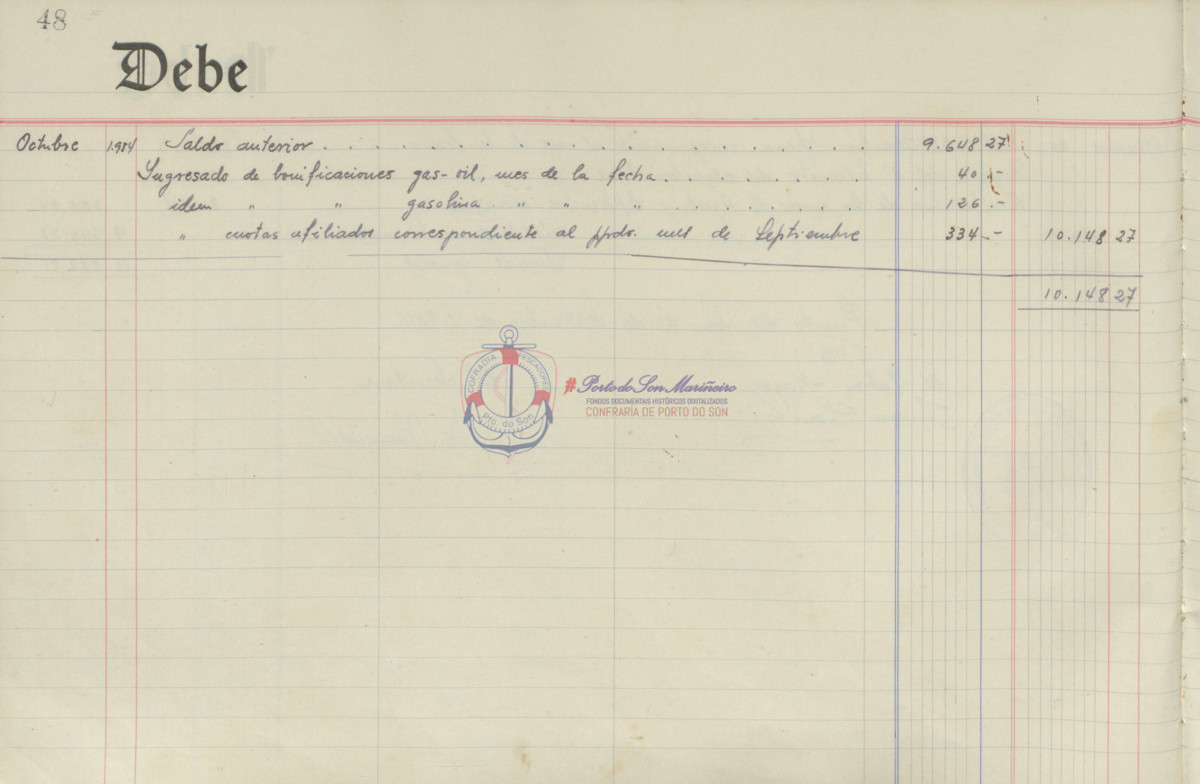 48
Debe
Octubre 1954 Saldo anterior . . . . . . . . . . . . . . . . . . . . 9.648 27
Ingresado de bonificaciones gas-oil, mes de la fecha . . . . . . . . 40 .-
idem " " gasolina " " " . . . . . . . 126 .-
" cuotas afiliados correspondiente al ppdo. mes de Septiembre 334 .- 10.148 27
10.148 27
COFRADIA PESCADORES
Pto. do Son
#Porto do Son Mariñeiro
FONDOS DOCUMENTAIS HISTÓRICOS DIXITALIZADOS
CONFRARÍA DE PORTO DO SON